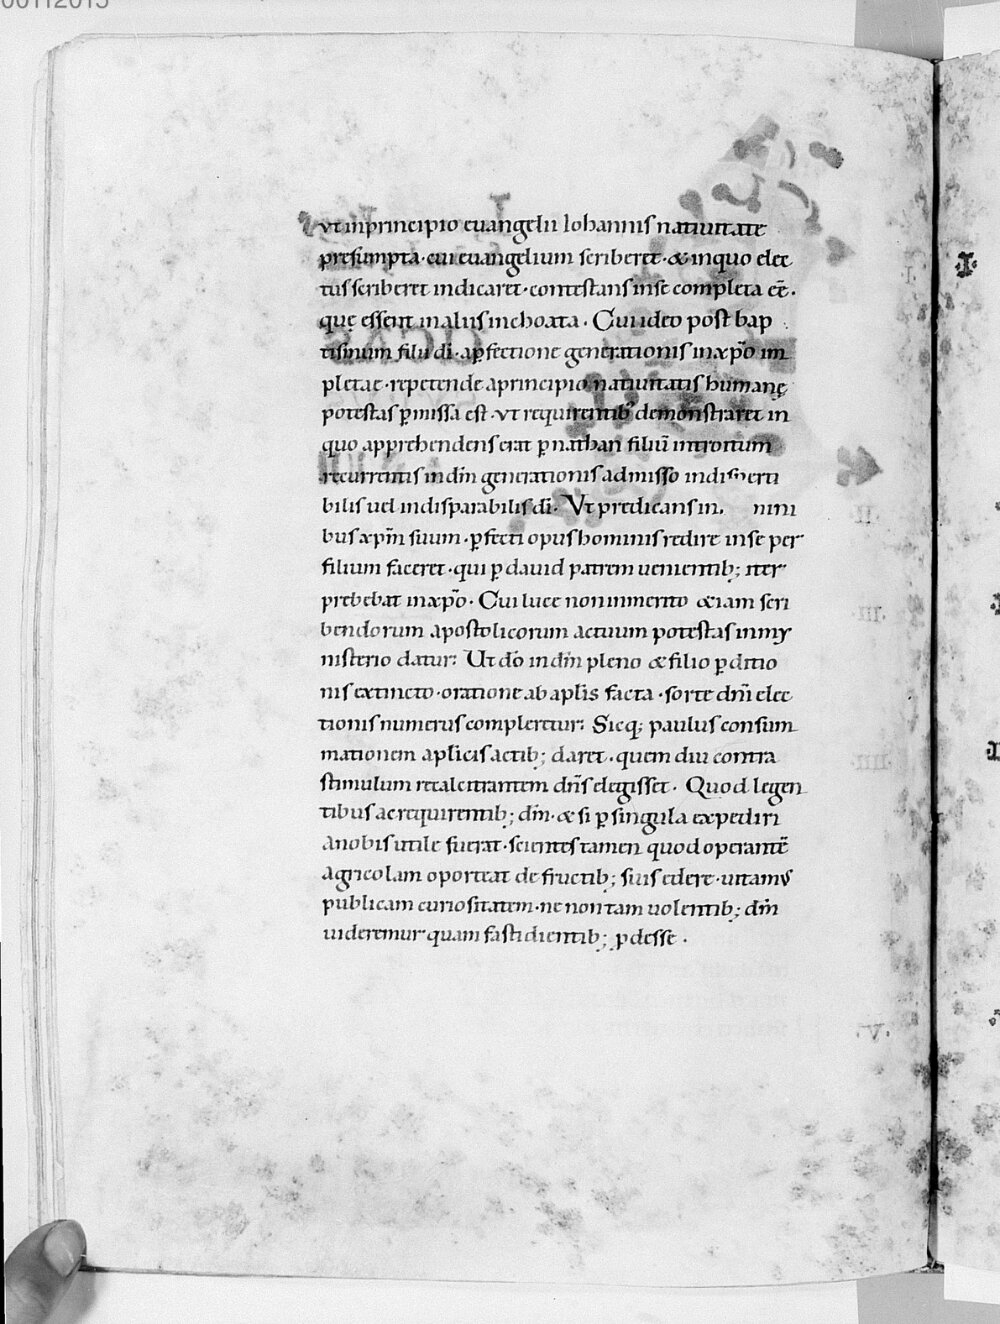 00112015
ut inprincipio euangelii Iohannis natiuitate
presumpta · cui euangelium scriberet · & inquo elec
tus scriberet indicaret · contestans inse completa eẽ ·
quę essent inaliis inchoata · Cui ideo post bap
tismum filii dī · apfectione generationis inxp̄o im
pletae · repetende aprincipio natiuitatis humanę
potestas pmissa est · ut requirentib; demonstraret in
quo apprehendens erat p nathan filiū introitum
recurrentis indm̄ generationis admisso indisperti
bilis uel indisparabilis dī · Ut predicans in mini
bus xpm̄ suum · pfecti opus hominis redire inse per
filium faceret · qui p dauid patrem uenientib; iter
prebebat inxp̄o · Cui luce non inmerito &iam scri
bendorum apostolicorum actuum potestas inmy
nisterio datur: Ut dō indm̄ pleno & filio pditio
nis extincto · oratione ab aplīs facta · sorte dn̄i elec
tionis numerus compleretur: Sicq; paulus consum
mationem aplicis actib; daret · quem diu contra
stimulum recalcitrantem dn̄s elegisset · Quod legen
tibus ac requirentib; dm̄ · & si p singula expediri
anobis utile fuerat · scientes tamen quod operantē
agricolam oporteat de fructib; suis edere · uitamus
publicam curiositatem · ne non tam uolentib; dm̄
uideremur quam fastidientib; pdesse ·